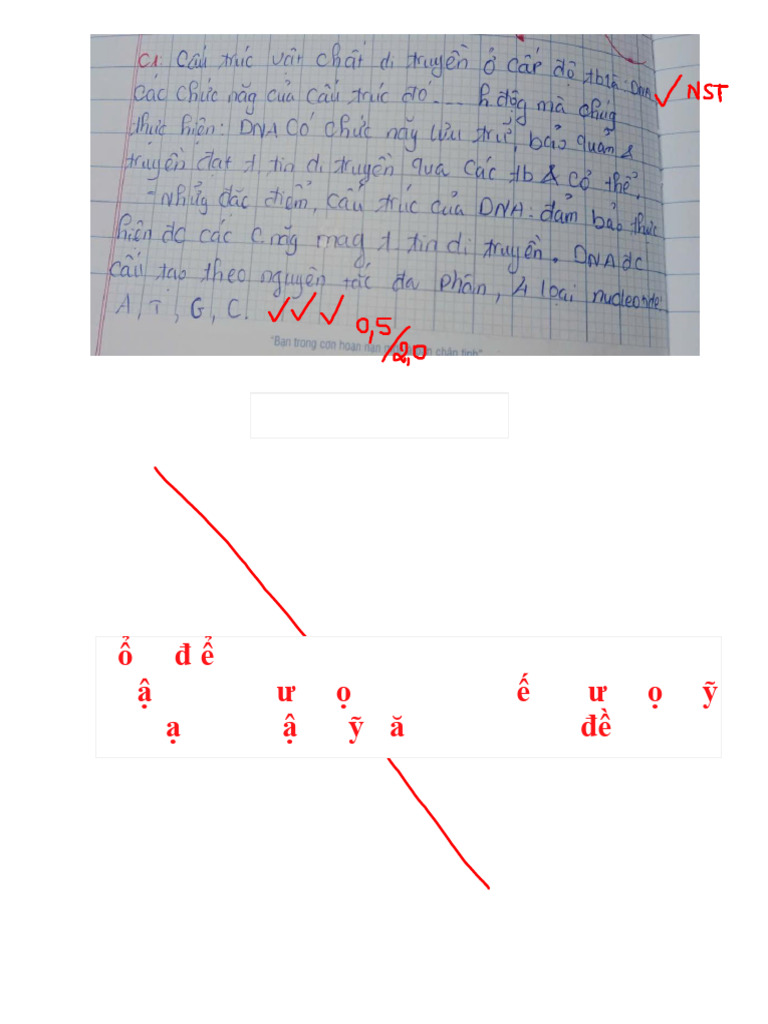 C1: Cấu trúc vật chất di truyền ở cấp độ tb là: DNA NST
Các chức năg của cấu trúc đó .... h độg mà chúg
thực hiện: DNA có chức năg lưu trữ, bảo quản &
truyền đạt t.tin di truyền qua các tb & cơ thể.
- Nhữg đặc điểm, cấu trúc của DNA: đảm bảo thực
hiện đc các c.năg mag t.tin di truyền. DNA đc
cấu tạo theo nguyên tắc đa phân, 4 loại nucleotide:
A, T, G, C.
0,5/2,0
"Bạn trong cơn hoạn nạn chân tình"
ổ đ ể
ậ ư ọ ế ư ọ ỹ
ạ ậ ỹ ă đề